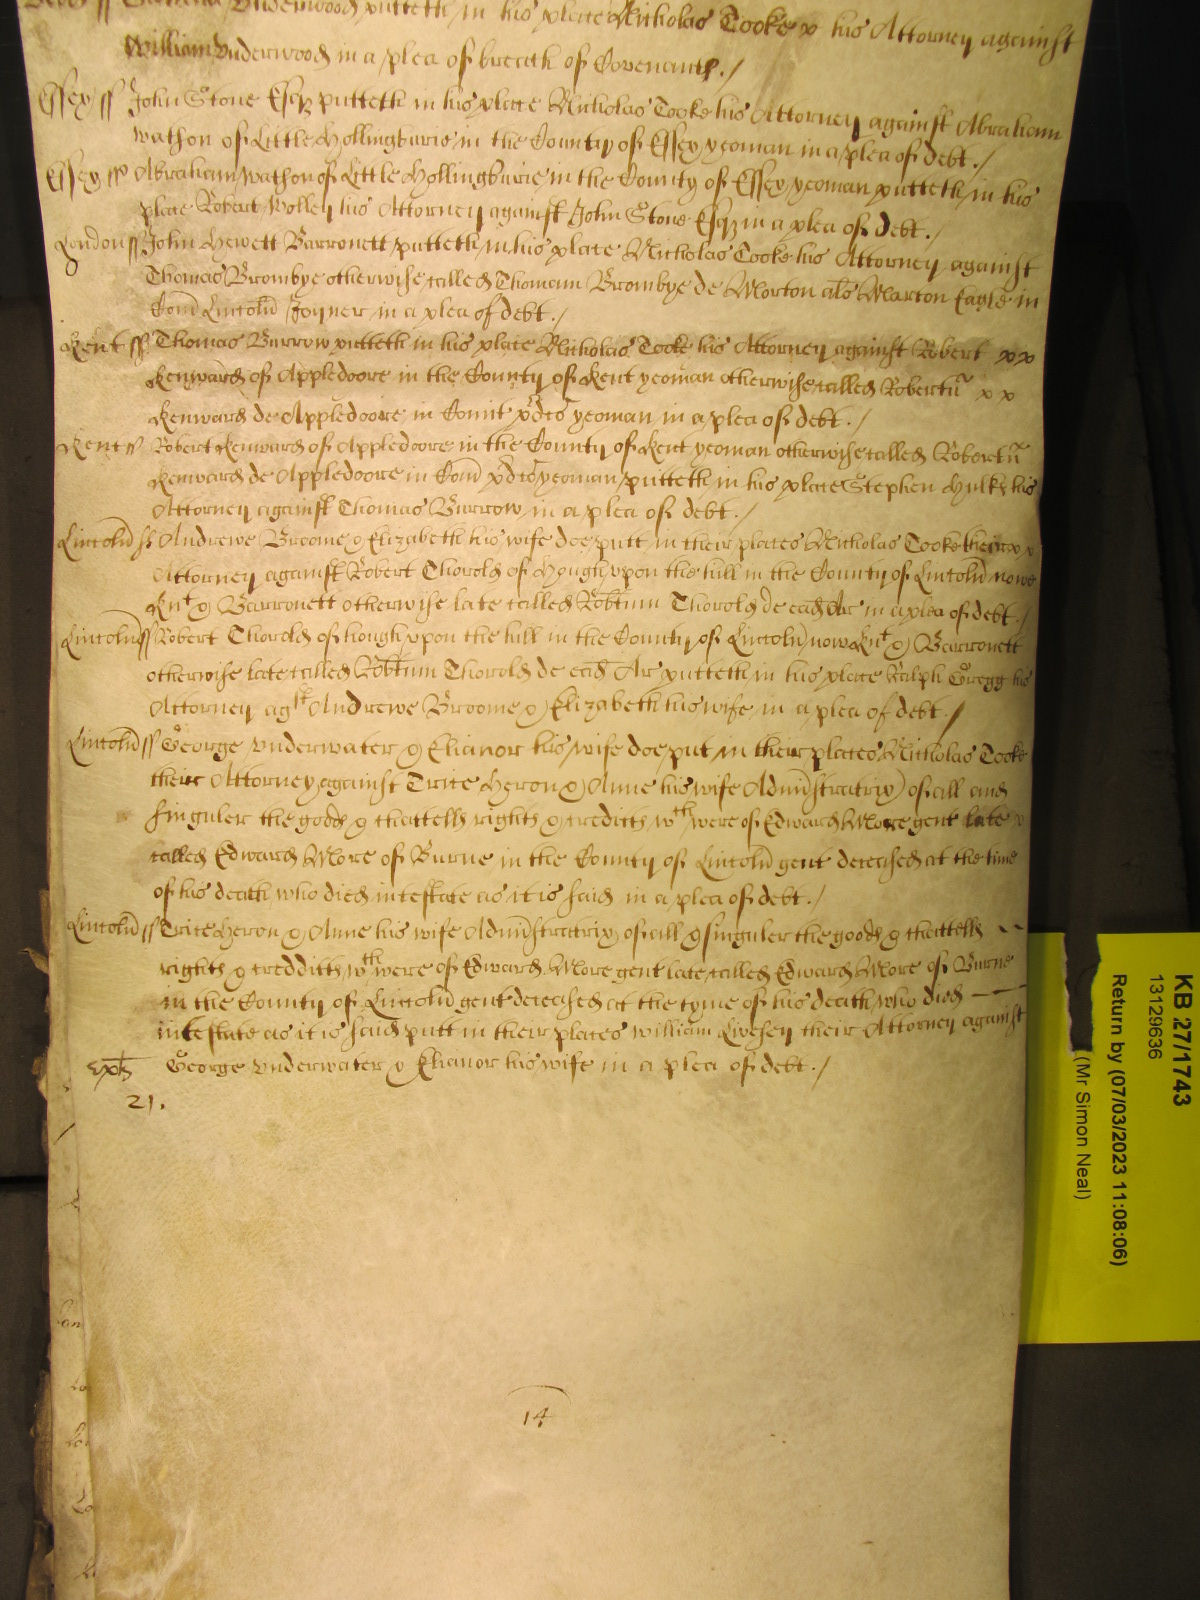 Underwood putteth in his place Nicholas Cooke his Attorney against
William Underwood in a plea of breach of Covenant./
Essex ss John Stone Esqr putteth in his place Nicholas Cooke his Attorney against Abraham
Wathon of Little Hollingburie in the County of Essex yeoman in a plea of debt./
Essex ss Abraham Wathon of Little Hollingburie in the County of Essex yeoman putteth in his
place Robert Wolley his Attorney against John Stone Esqr in a plea of debt./
London ss John Hewett Barronett putteth in his place Nicholas Cooke his Attorney against
Thomas Brombye otherwise called Thomam Brombye de Morton als Marton Eagle in
Com Lincoln Joyner in a plea of debt./
Kent ss Thomas Burrow putteth in his place Nicholas Cooke his Attorney against Robert x x
Kenward of Appledoore in the County of Kent yeoman otherwise called Robertu x x
Kenward de Appledoore in Comit pdto yeoman in a plea of debt./
Kent ss Robert Kenward of Appledoore in the County of Kent yeoman otherwise called Robertu
Kenward de Appledoore in Com pdto yeoman putteth in his place Stephen Hulks his
Attorney against Thomas Burrow in a plea of debt./
Lincoln ss Andrewe Broome & Elizabeth his wife doe putt in their places Nicholas Cooke their x x
Attorney against Robert Thorold of Hough upon the hill in the County of Lincoln nowe
Knt & Barronett otherwise late called Robtum Thorold de ead Ar in a plea of debt./
Lincoln ss Robert Thorold of hough upon the hill in the County of Lincoln now Knt & Barronett
otherwise late called Robtum Thorold de ead Ar putteth in his place Ralph Gregg his
Attorney agst Andrewe Broome & Elizabeth his wife in a plea of debt./
Lincoln ss George Underwater & Elianor his wife doe put in their places Nicholas Cooke
their Attorney against Trite Heron & Anne his wife Adminstratrix of all and
singuler the goods & chattells rights & creditts wth were of Edward More gent late
called Edward More of Burne in the County of Lincoln gent deceased at the time
of his death who died intestate as it is said in a plea of debt./
Lincoln ss Trite Heron & Anne his wife Adminstratrix of all & singuler the goods & chattells
rights & credditts wth were of Edward More gent late called Edward More of Burne
in the County of Lincoln gent deceased at the tyme of his death who died
intestate as it is said putt in their places William Livesey their Attorney against
George Underwater & Elianor his wife in a plea of debt./
21.
14
KB 27/1743
13129636
Return by (07/03/2023 11:08:06)
(Mr Simon Neal)